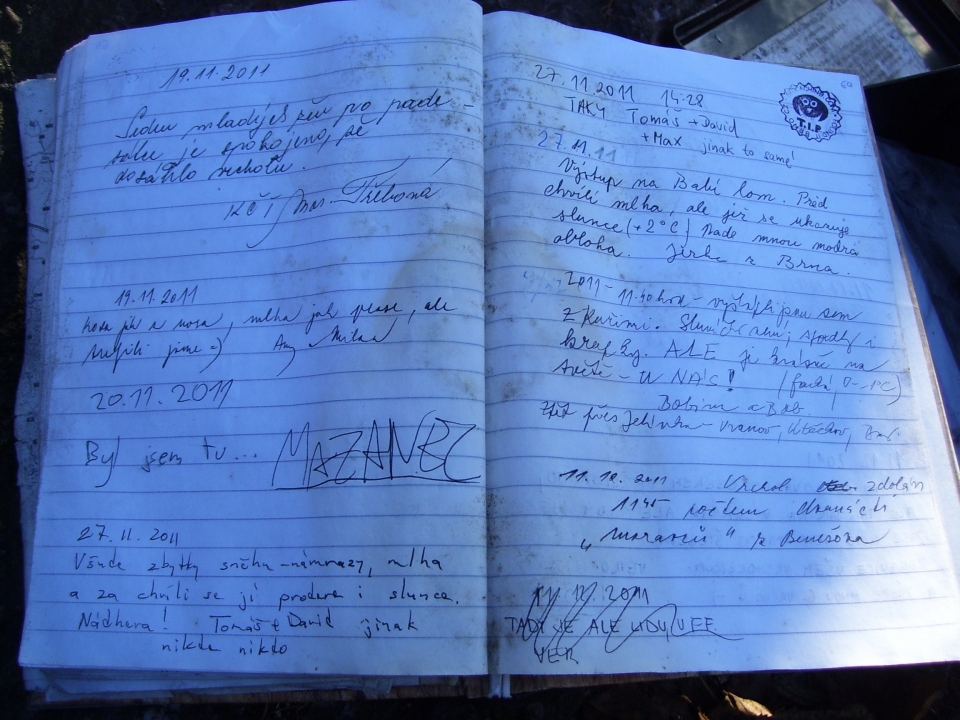 19.11.2011
je spokojeno, že
dosáhlo vrcholu.
KČT Třebová
19.11.2011
Kosa jak z nosa, mlha jak prase, ale
jsme =) Any
20.11.2011
Byl jsem tu... MAZANEC
27.11.2011
Všude zbytky sněhu - námrazy, mlha
a za chvíli se jí prodere i slunce.
Nádhera! Tomáš + David jinak
nikde nikdo
60
27.11.2011 14:28
TAKY Tomáš + David
+ Max jinak to samé!
T.I.P.
27.11.11
Výstup na Babí lom. Před
chvílí mlha, ale již se ukazuje
slunce (+2°C) Nade mnou modrá
obloha. Jirka z Brna.
2011 - 11.40 hod - vyšlápli jsme sem
z Kuřimi. Sluníčko není, i
kraťky. ALE je krásně na
světě - U NÁS! (0 - 1°C)
a Bob
Zpět přes Jehnice - Vranov, Útěchov,
2011 Vrchol zdolán
1145 počtem dvanácti
"moravců" z Benešova
2011
TADY JE ALE LIDU